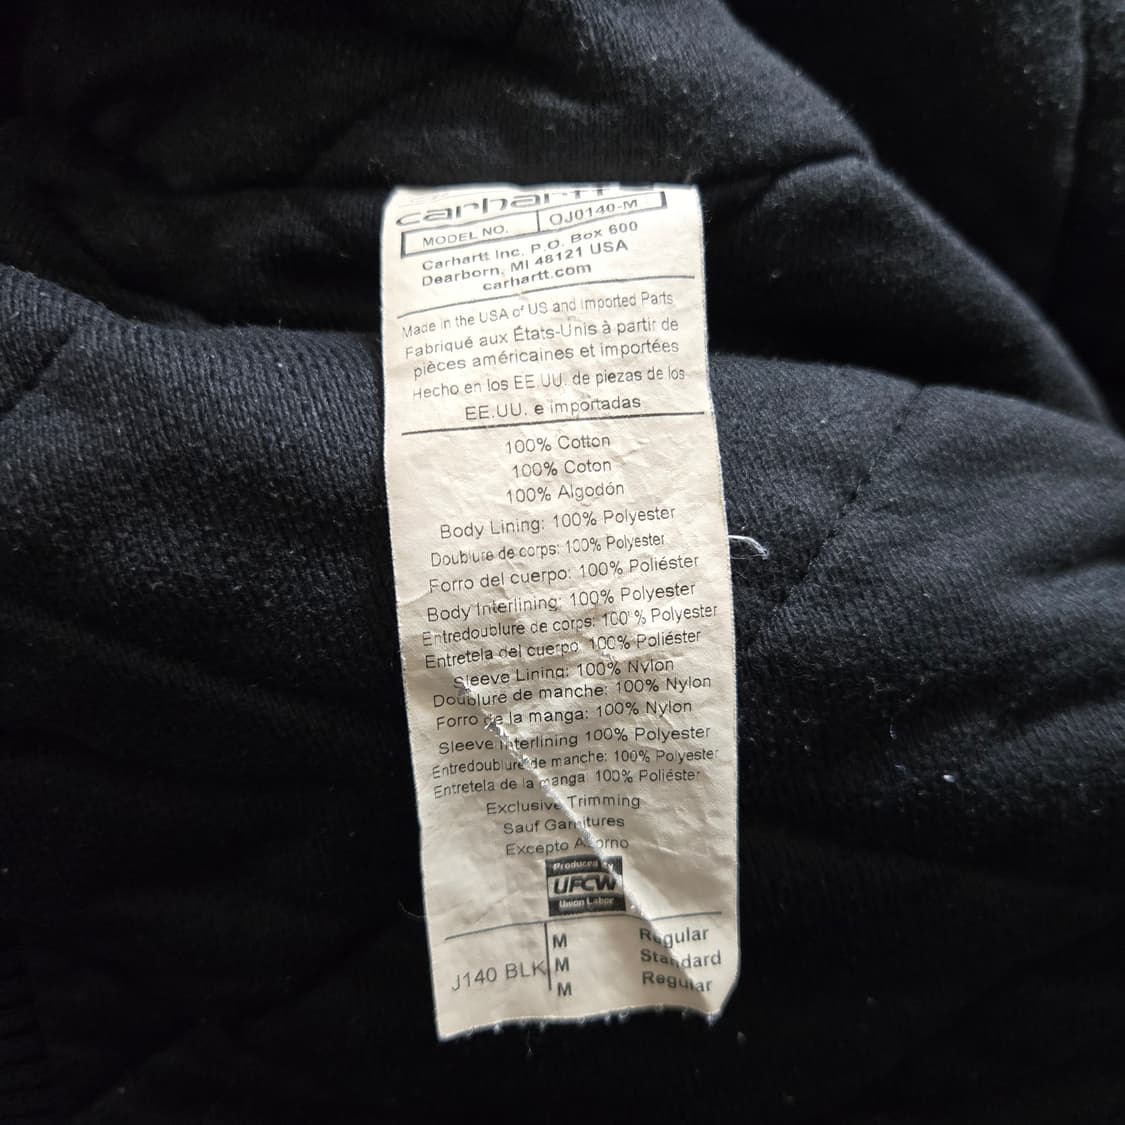 carhartt
MODEL NO. OJ0140-M
Carhartt Inc. P.O. Box 600
Dearborn, MI 48121 USA
carhartt.com
Made in the USA of US and Imported Parts
Fabriqué aux États-Unis à partir de
pièces américaines et importées
Hecho en los EE.UU. de piezas de los
EE.UU. e importadas
100% Cotton
100% Coton
100% Algodón
Body Lining: 100% Polyester
Doublure de corps: 100% Polyester
Forro del cuerpo: 100% Poliéster
Body Interlining: 100% Polyester
Entredoublure de corps: 100% Polyester
Entretela del cuerpo 100% Poliéster
Sleeve Lining: 100% Nylon
Doublure de manche: 100% Nylon
Forro de la manga: 100% Nylon
Sleeve Interlining 100% Polyester
Entredoublure de manche: 100% Polyester
Entretela de la manga 100% Poliéster
Exclusive Trimming
Sauf Garnitures
Excepto Adorno
Produced by
UFCW
Union Labor
M Regular
J140 BLK M Standard
M Regular